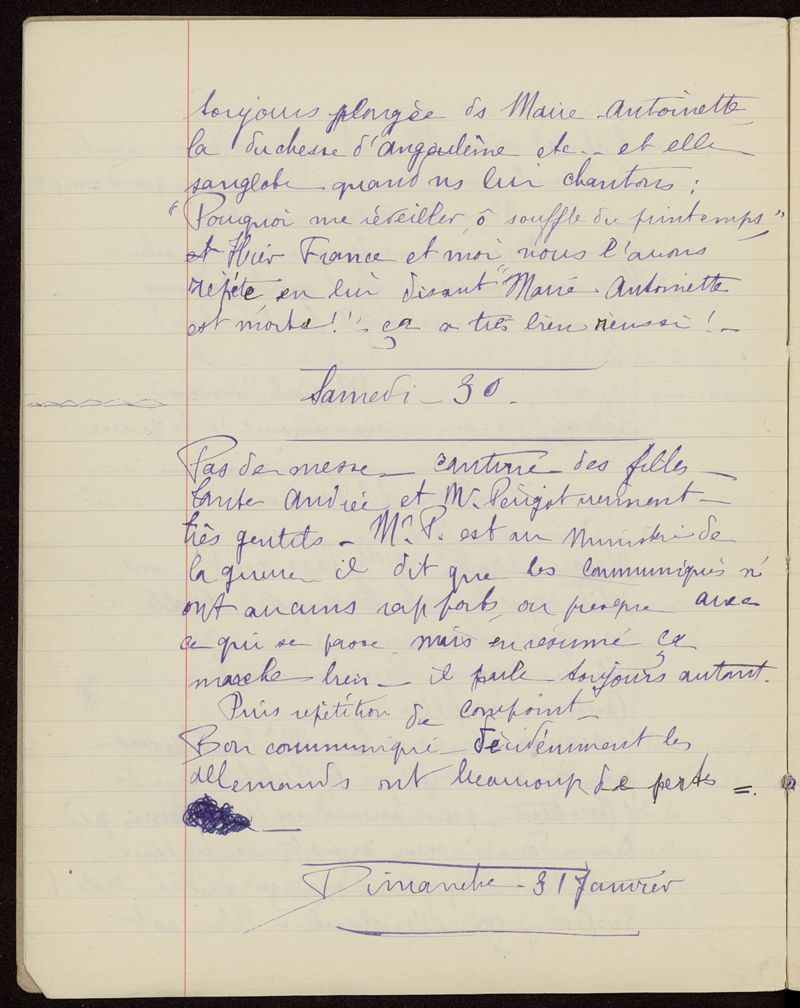 toujours plongée ds Marie-Antoinette
la duchesse d'angoulême etc.. et elle
sanglote quand ns lui chantons :
"Pourquoi me réveiller, ô souffle du printemps"
et Hier France et moi nous l'avons
répété en lui disant "Marie-Antoinette
est morte!" ça a très bien réussi! _
Samedi _ 30 .
Pas de messe _ cantine des filles _
tante Andrée et Mr. Périgot viennent _
très gentils _ Mr. P. est au Ministère de
la guerre il dit que les communiqués n'
ont aucuns rapports ou presque avec
ce qui se passe mais en résumé ça
marche bien _ il parle toujours autant.
Puis répétition de compoint _
Bon communiqué _ décidemment les
allemands ont beaucoup de pertes =.
Dimanche _ 31 Janvier